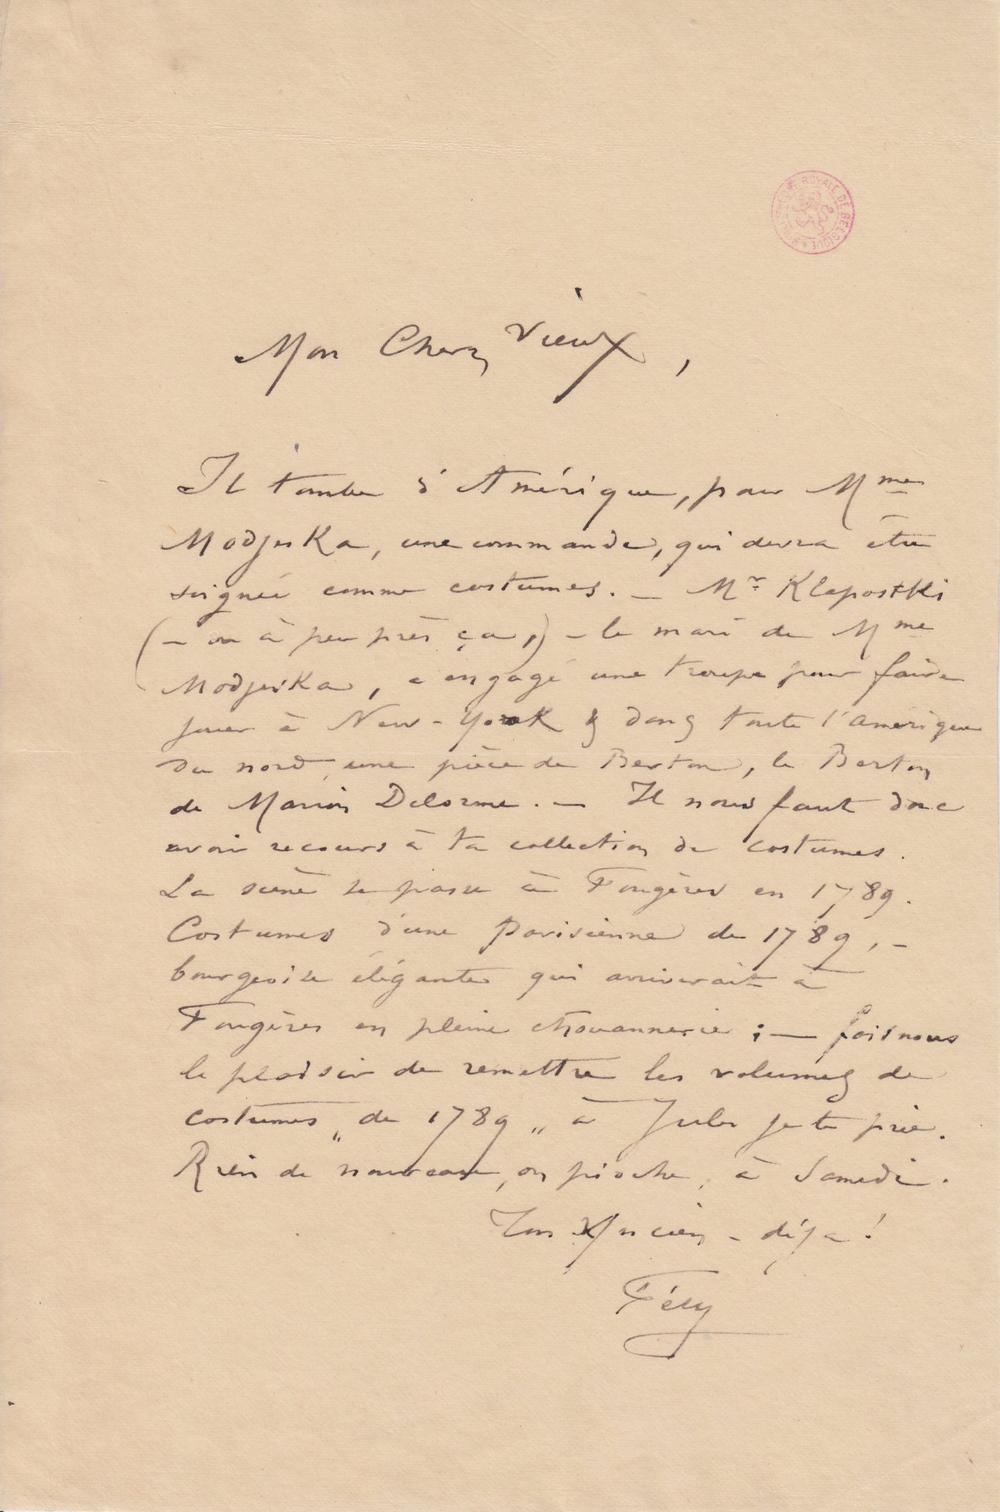 BIBLIOTHÈQUE ROYALE DE BELGIQUE
Mon Cher Vieux,
Il tombe d'Amérique, pour Mme
Modjeska, une commande, qui devra être
soignée comme costumes. — Mr Klapostki
(— ou à peu près ça,) — le mari de Mme
Modjeska, a engagé une troupe pour faire
jouer à New-York & dans toute l'amérique
du nord, une pièce de Berton, le Berton
de Marion Delorme. — Il nous faut donc
avoir recours à ta collection de costumes.
La scène se passe à Fougères en 1789.
Costumes d'une Parisienne de 1789, —
bourgeoise élégante qui arriverait à
Fougères en pleine chouannerie ; — fais nous
le plaisir de remettre les volumes de
costumes „ de 1789 „ à Jules je te prie.
Rien de nouveau, on pioche, à Samedi.
Ton Ancien - déjà !
Fély